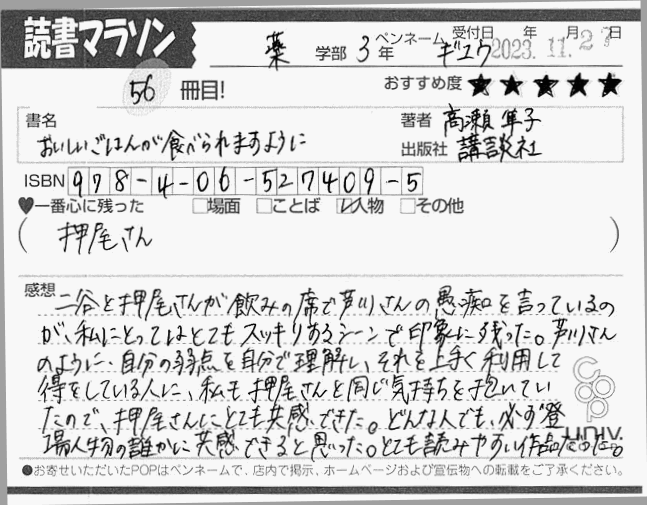 読書マラソン
薬 学部 3 年 ペンネーム ギユウ 受付日 年 月 日
2023.11.27
56 冊目!
おすすめ度 ★★★★★
書名
おいしいごはんが食べられますように
著者 高瀬 隼子
出版社 講談社
ISBN 978-4-06-527409-5
♥一番心に残った □場面 □ことば ☑人物 □その他
( 押尾さん )
感想
二谷と押尾さんが飲みの席で芦川さんの愚痴を言っているの
が、私にとってはとてもスッキリするシーンで印象に残った。芦川さん
のように、自分の弱点を自分で理解し、それを上手く利用して
得をしている人に、私も押尾さんと同じ気持ちを抱いてい
たので、押尾さんにとても共感できた。どんな人でも、必ず登
場人物の誰かに共感できると思った。とても読みやすい作品だった。
coop
univ.
●お寄せいただいたPOPはペンネームで、店内で掲示、ホームページおよび宣伝物への転載をご了承ください。